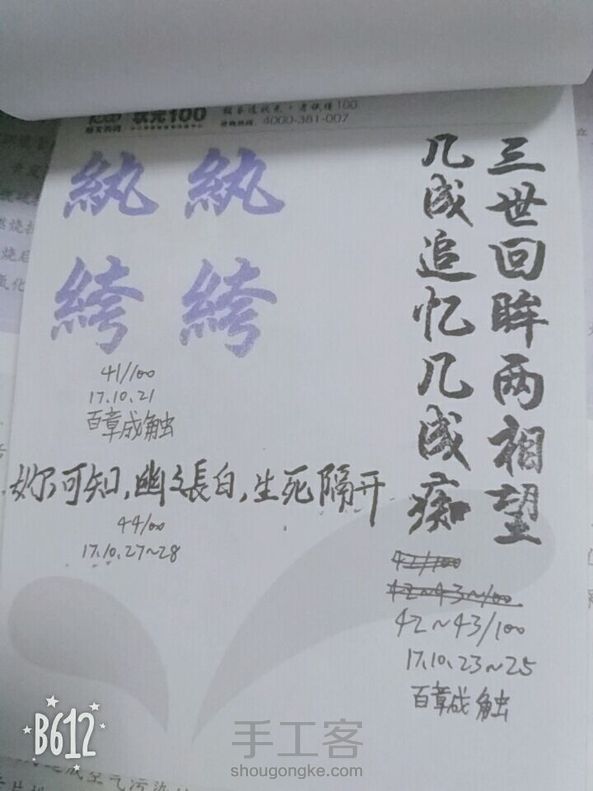 状元100
4000-381-007
紈 紈
絝 絝
41/100
17.10.21
百章成触
妳可知,幽幽長白,生死隔开
44/100
17.10.27~28
三世回眸两相望
几成追忆几成痴
42/100
42~43~100
42~43/100
17.10.23~25
百章成触
B612
手工客
shougongke.com